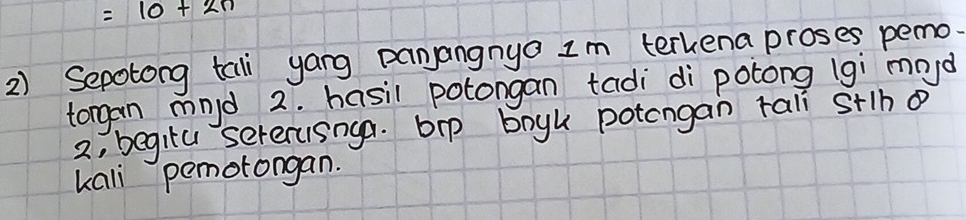 = 10 + 2n
2) Sepotong tali yang panjangnya 1m terkena proses pemo-
tongan mnjd 2. hasil potongan tadi di potong lgi mnjd
2, begitu seterusnya. brp bnyk potongan tali stlh 8
kali pemotongan.